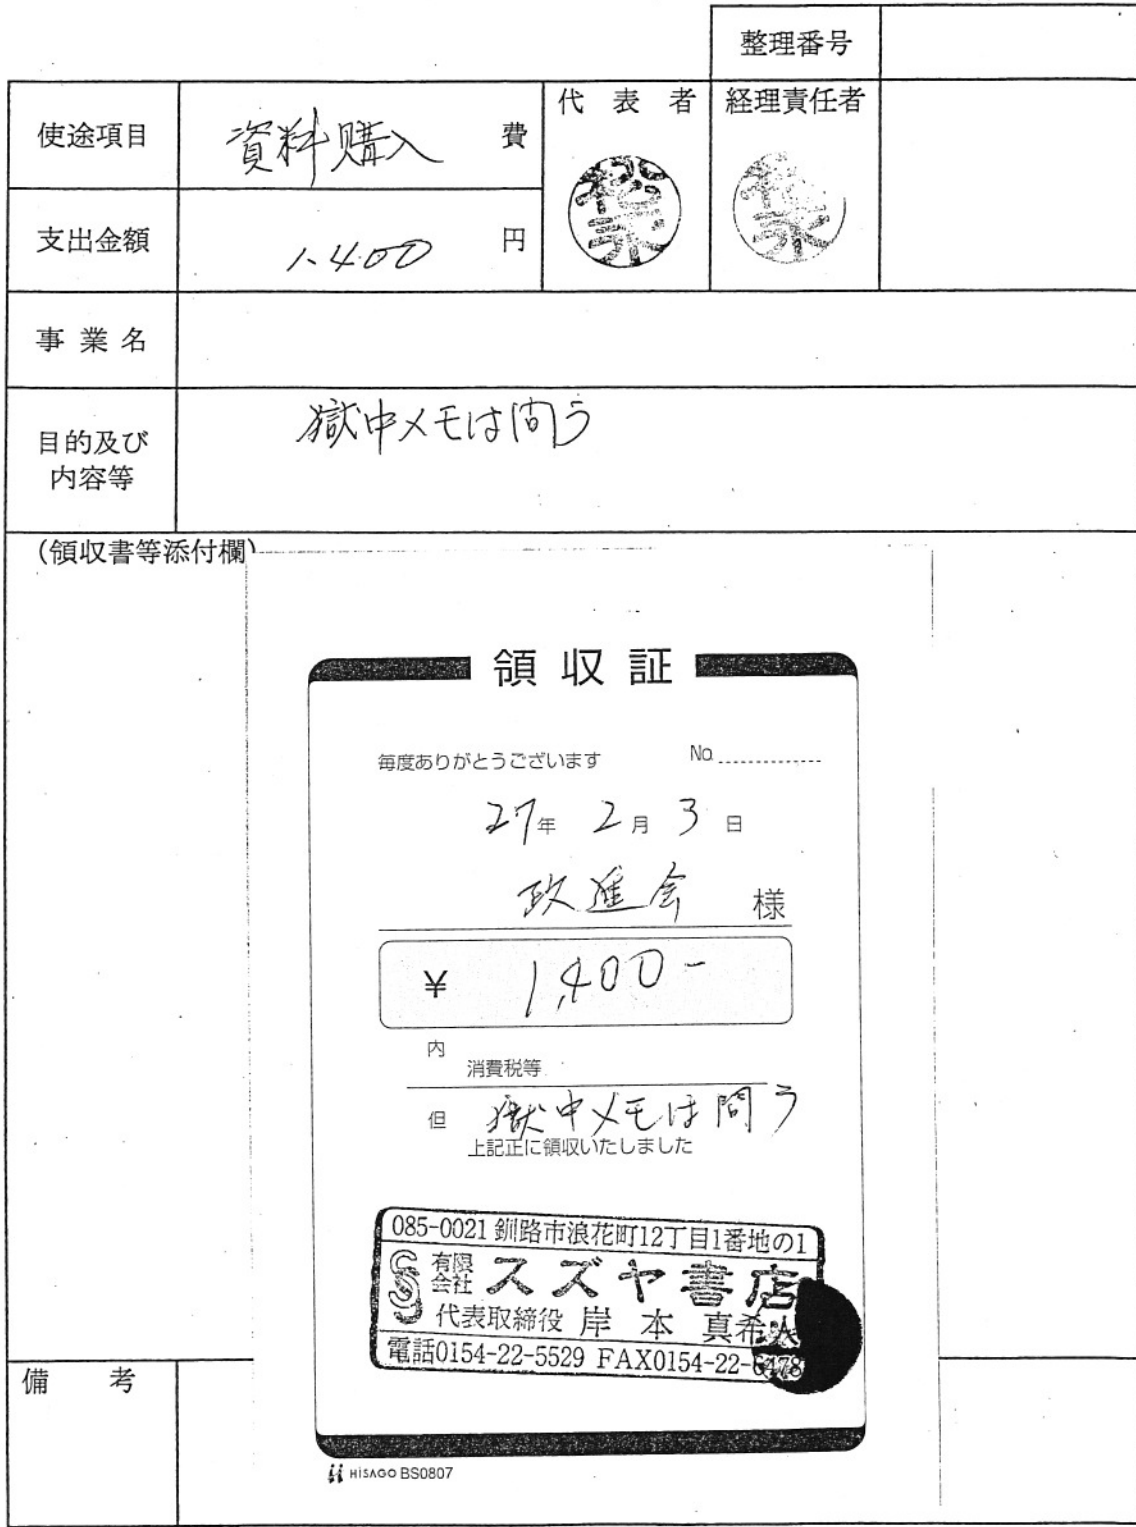 整理番号
使途項目 資料購入 費
代表者 経理責任者
支出金額 1,400 円
事業名
目的及び
内容等
獄中メモは問う
(領収書等添付欄)
領収証
毎度ありがとうございます No.
27年 2月 3日
政進会 様
¥ 1,400-
内 消費税等
但 獄中メモは問う
上記正に領収いたしました
085-0021 釧路市浪花町12丁目1番地の1
有限会社 スズヤ書店
代表取締役 岸本 真希人
電話0154-22-5529 FAX0154-22-6478
備考
HISAGO BS0807